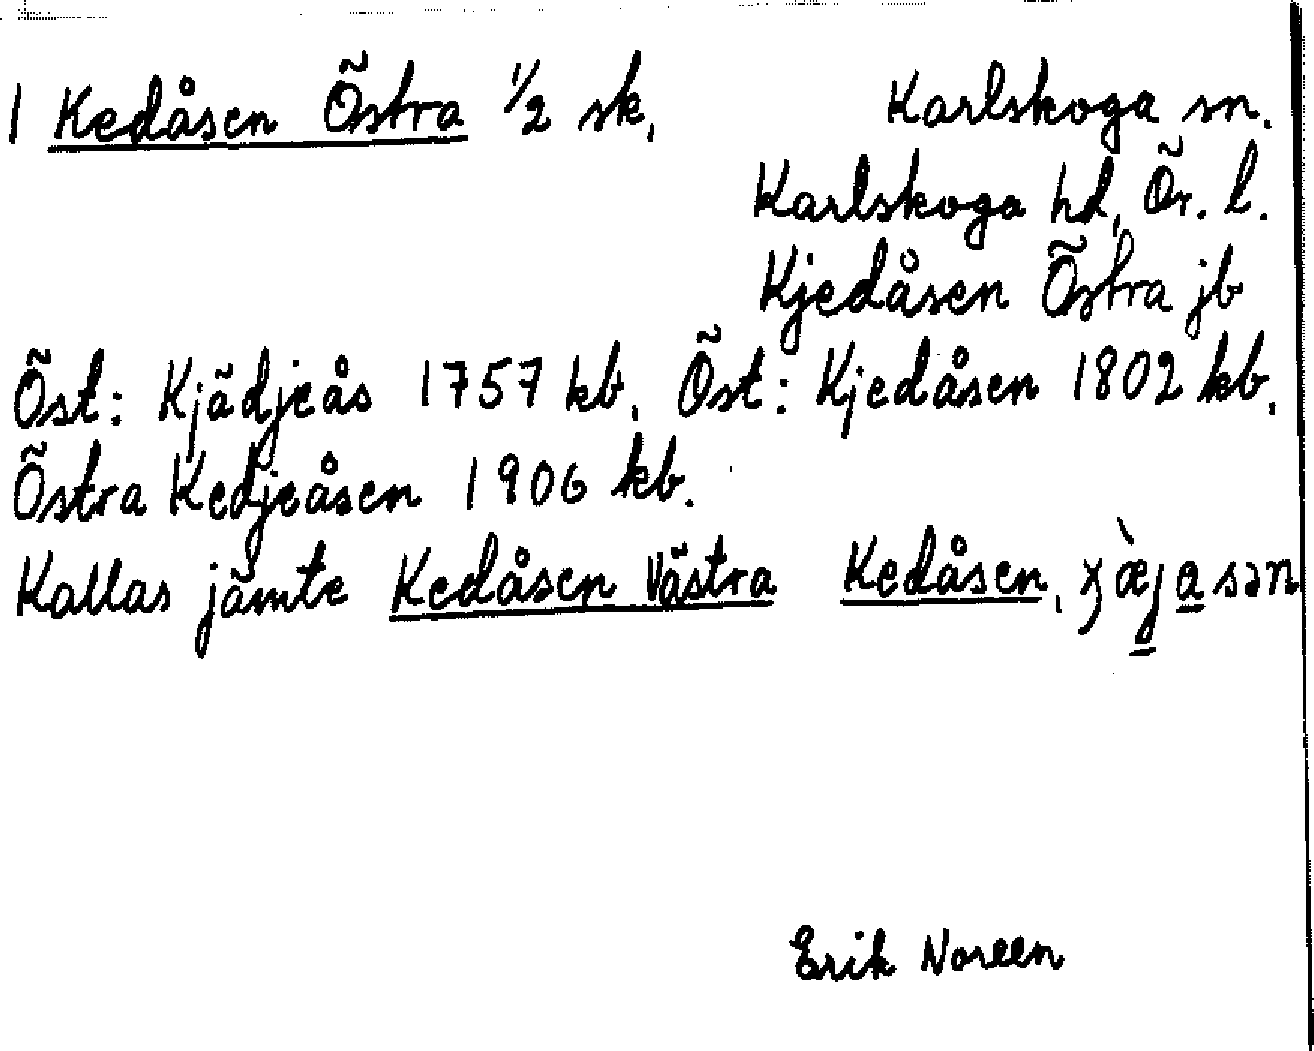 1 Kedåsen Östra ½ sk, Karlskoga sn.
Karlskoga hd, Ör. l.
Kjedåsen Östra jb
Öst: Kjädjeås 1757 kb, Öst: Kjedåsen 1802 kb.
Östra Kedjeåsen 1906 kb.
Kallas jämte Kedåsen Västra Kedåsen,
Erik Noreen